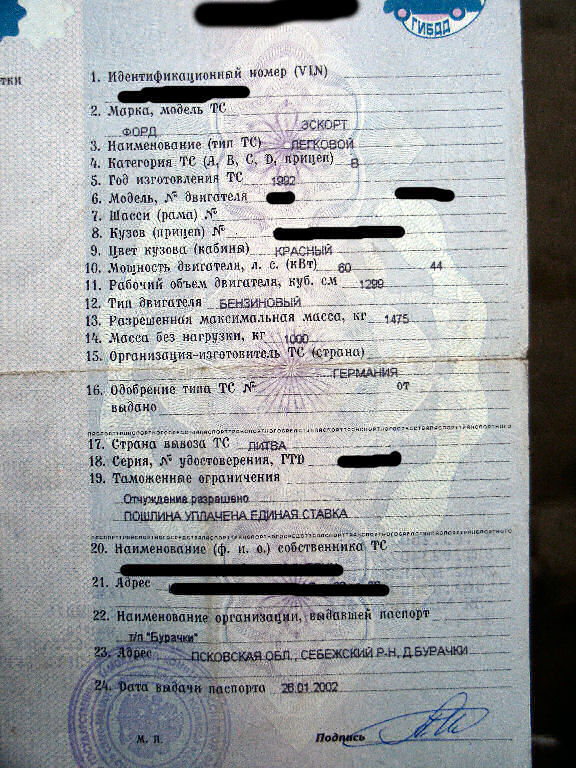 ГИБДД
тки
1. Идентификационный номер (VIN)
2. Марка, модель ТС
ФОРД ЭСКОРТ
3. Наименование (тип ТС) ЛЕГКОВОЙ
4. Категория ТС (A, B, C, D, прицеп) B
5. Год изготовления ТС 1992
6. Модель, № двигателя
7. Шасси (рама) №
8. Кузов (прицеп) №
9. Цвет кузова (кабины) КРАСНЫЙ
10. Мощность двигателя, л. с. (кВт) 60 44
11. Рабочий объем двигателя, куб. см 1299
12. Тип двигателя БЕНЗИНОВЫЙ
13. Разрешенная максимальная масса, кг 1475
14. Масса без нагрузки, кг 1000
15. Организация-изготовитель ТС (страна)
ГЕРМАНИЯ
16. Одобрение типа ТС № от
выдано
17. Страна вывоза ТС ЛИТВА
18. Серия, № удостоверения, ГТД
19. Таможенные ограничения
Отчуждение разрешено
ПОШЛИНА УПЛАЧЕНА ЕДИНАЯ СТАВКА
20. Наименование (ф. и. о.) собственника ТС
21. Адрес
22. Наименование организации, выдавшей паспорт
т/п "Бурачки"
23. Адрес ПСКОВСКАЯ ОБЛ., СЕБЕЖСКИЙ Р-Н, Д.БУРАЧКИ
24. Дата выдачи паспорта 26.01.2002
М. П. Подпись